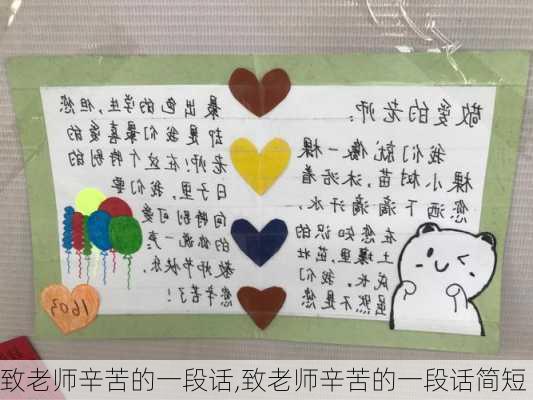 敬爱的老师：
我们就像一棵
棵小树苗,沐浴着
您洒下滴滴汗水,
在您知识的
土壤里,茁壮
成长。我们
虽然不是您
最出色的学生,但,您
却是我们最喜爱的
老师!在这个特别的
日子里,我们要
向特别可爱
的您说一声:
教师节快乐,
您辛苦了!
1603
致老师辛苦的一段话,致老师辛苦的一段话简短